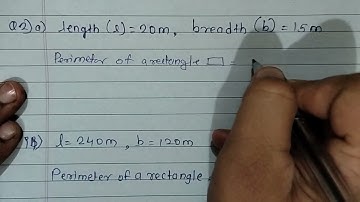 Q2) a) length (l) = 20m, breadth (b) = 15m
Perimeter of a rectangle ▭ =
l = 240m, b = 120m
Perimeter of a rectangle